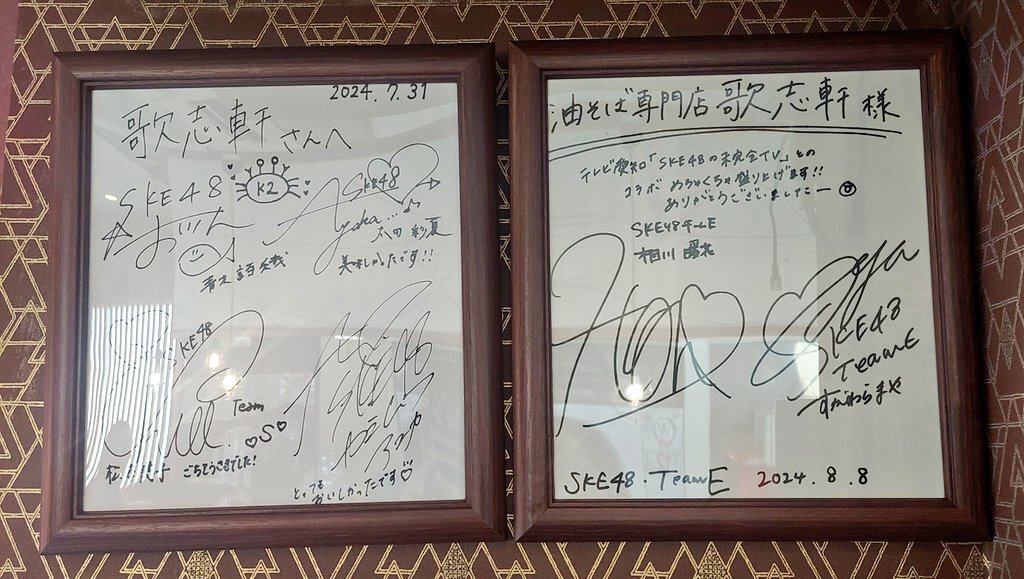 2024.7.31
歌志軒さんへ
SKE48
K2
SKE48
太田 彩夏
美味しかったです!!
青木 詩織
SKE48
Team
♡S♡
ごちそうさまでした!
とっても
おいしかったです♡
油そば専門店歌志軒様
テレビ愛知「SKE48の未完全TV」との
コラボ めちゃくちゃ盛り上げます!!
ありがとうございましたー
SKE48チームE
相川 暖花
SKE48
TeamE
すがわらまや
SKE48・TeamE 2024.8.8